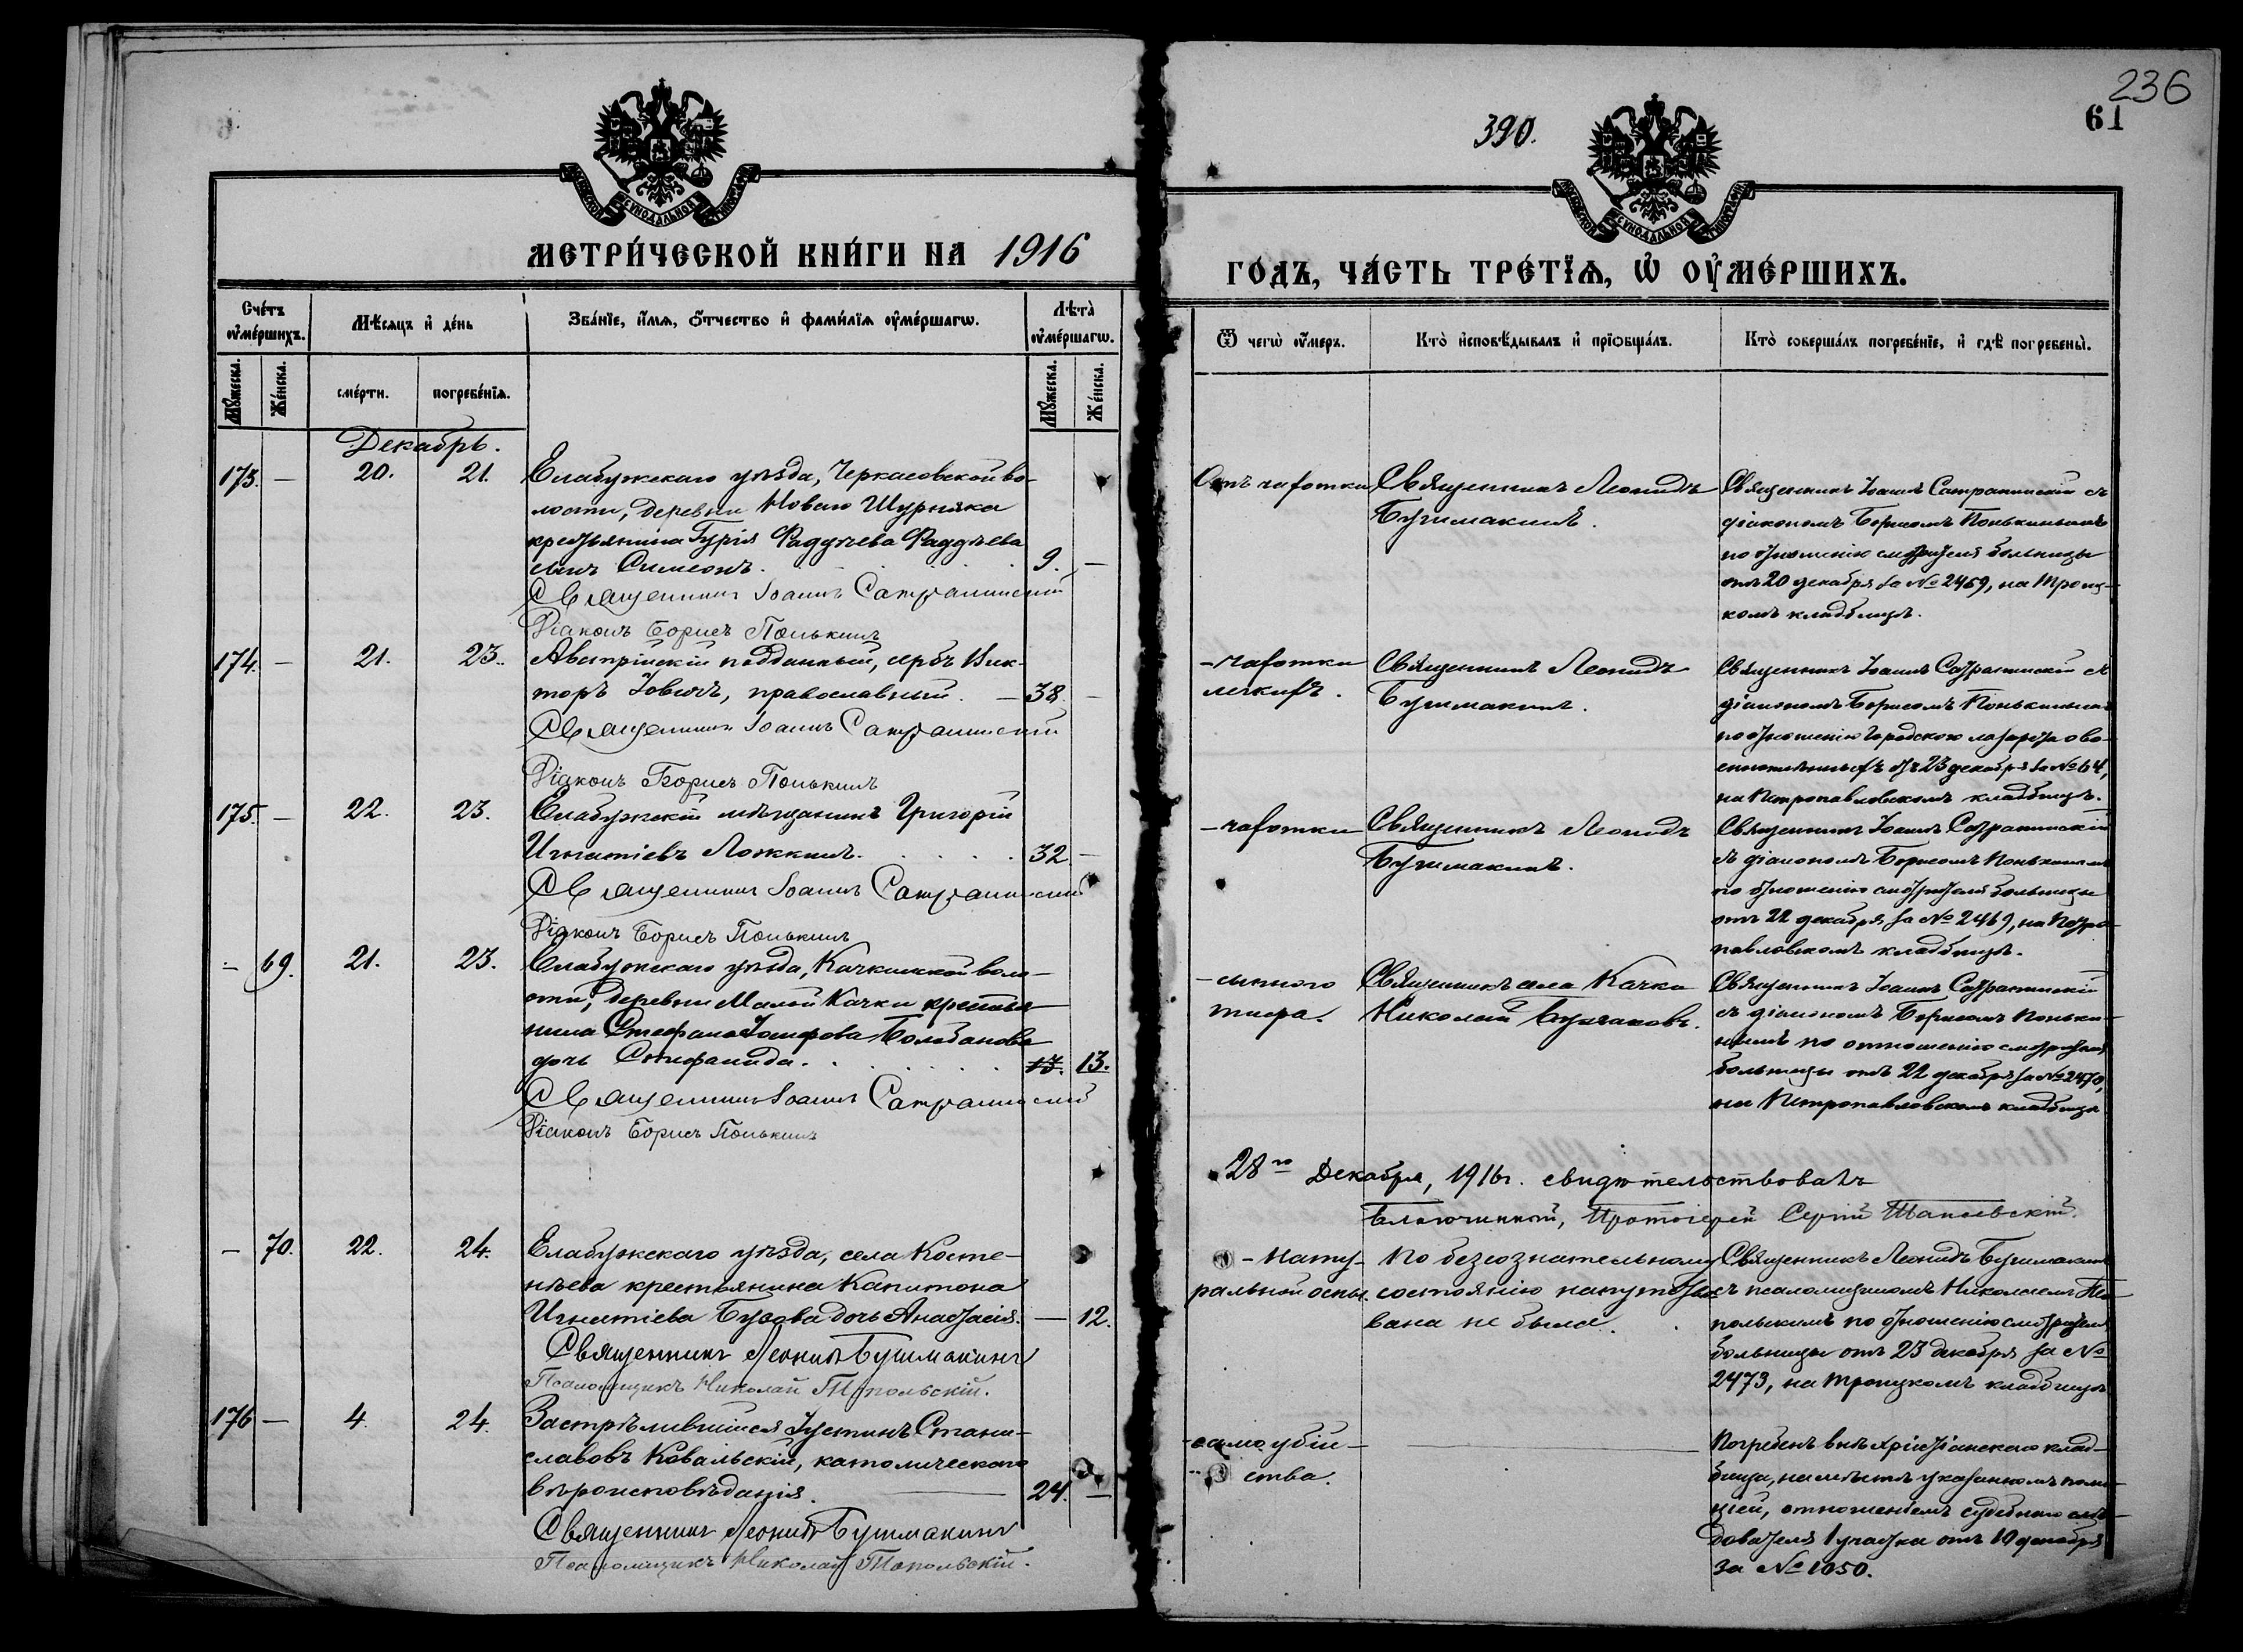 236
61
390.
МЕТРИ́ЧЕСКОЙ КНИ́ГИ НА 1916
ГО́ДЪ, ЧА́СТЬ ТРЕ́ТЇѦ, Ѡ҆ ОУ҆МЕ́РШИХЪ.
Сче́тъ оу҆ме́ршихъ.
Мѣ́сѧцъ и҆ де́нь
Зва́нїе, и҆́мѧ, ѻ҆́тчество и҆ фами́лїѧ оу҆ме́ршагѡ.
Лѣ̀та̀ оу҆ме́ршагѡ.
Ѿ чегѡ̀ оу҆́меръ.
Кто̀ и҆сповѣ́дывалъ и҆ прїѡбща́лъ.
Кто̀ соверша́лъ погребе́нїе, и҆ гдѣ̀ погребены̀.
Мꙋ́жеска.
Же́нска.
сме́рти.
погребе́нїѧ.
Мꙋ́жеска.
Же́нска.
Декабрь.
173. — 20. 21.
Елабужскаго уѣзда, Черкасовской во-
лости, деревни Новаго Шурняка
крестьянина Гурія Фадѣева Фаддѣева
сынъ Симеонъ. 9. —
Священникъ Іоаннъ Сатрапинскій
Діаконъ Борисъ Понькинъ
Отъ чахотки
Священникъ Леонидъ
Бушмакинъ.
Священникъ Іоаннъ Сатрапинскій съ
діакономъ Борисомъ Понькинымъ
по отношенію смотрителя больницы
отъ 20 декабря за № 2469, на Троиц-
комъ кладбищѣ.
174. — 21. 23.
Австрійскій подданный, сербъ Вик-
торъ Іовичъ, православный. — 38. —
Священникъ Іоаннъ Сатрапинскій
Діаконъ Борисъ Понькинъ
— чахотки
легкихъ.
Священникъ Леонидъ
Бушмакинъ.
Священникъ Іоаннъ Сатрапинскій съ
діакономъ Борисомъ Понькинымъ
по отношенію Городского лазарета о во-
еноплѣнныхъ отъ 23 декабря за № 64,
на Петропавловскомъ кладбищѣ.
175. — 22. 23.
Елабужскій мѣщанинъ Григорій
Игнатіевъ Ложкинъ. 32 —
Священникъ Іоаннъ Сатрапинскій
Діаконъ Борисъ Понькинъ
— чахотки
Священникъ Леонидъ
Бушмакинъ.
Священникъ Іоаннъ Сатрапинскій
съ діакономъ Борисомъ Понькинымъ
по отношенію смотрителя больницы
отъ 22 декабря за № 2469, на Петро-
павловскомъ кладбищѣ.
— 69. 21. 23.
Елабужскаго уѣзда, Качкинской воло-
сти, деревни Малой Качки крестья
нина Стефана Іосифова Болобанова
дочь Стефанида. 13. 13.
Священникъ Іоаннъ Сатрапинскій
Діаконъ Борисъ Понькинъ
— сыпного
тифа.
Священникъ села Качки
Николай
Священникъ Іоаннъ Сатрапинскій
съ діакономъ Борисомъ Поньки-
нымъ по отношенію смотрителя
больницы отъ 22 декабря за № 2470,
на Петропавловскомъ кладбищѣ
28го Декабря, 1916г. свидѣтельствовалъ
Благочинный, Протоіерей Сергій
— 70. 22. 24.
Елабужскаго уѣзда, села Косте-
нѣева крестьянина Капитона
Игнатіева Бузова дочь Анастасія. — 12.
Священникъ Леонидъ Бушмакинъ
Псаломщикъ Николай Топольскій.
— нату-
ральной оспы.
По безсознательному
состоянію напутство-
вана не была.
Священникъ Леонидъ Бушмакинъ
съ псаломщикомъ Николаемъ То-
польскимъ по отношенію смотрителя
больницы отъ 23 декабря за №
2473, на Троицкомъ кладбищѣ
176 — 4. 24.
Застрѣлившійся Іустинъ Стани-
славовъ Ковальскій, католическаго
вѣроисповѣданія. — 24. —
Священникъ Леонидъ Бушмакинъ
Псаломщикъ Николай Топольскій.
— самоубій-
ства.
Погребенъ внѣ христіанскаго клад-
бища, на мѣстѣ указанномъ поли-
ціей, отношеніемъ судебнаго слѣ-
дователя 1 участка отъ 10 декабря
за № 1050.